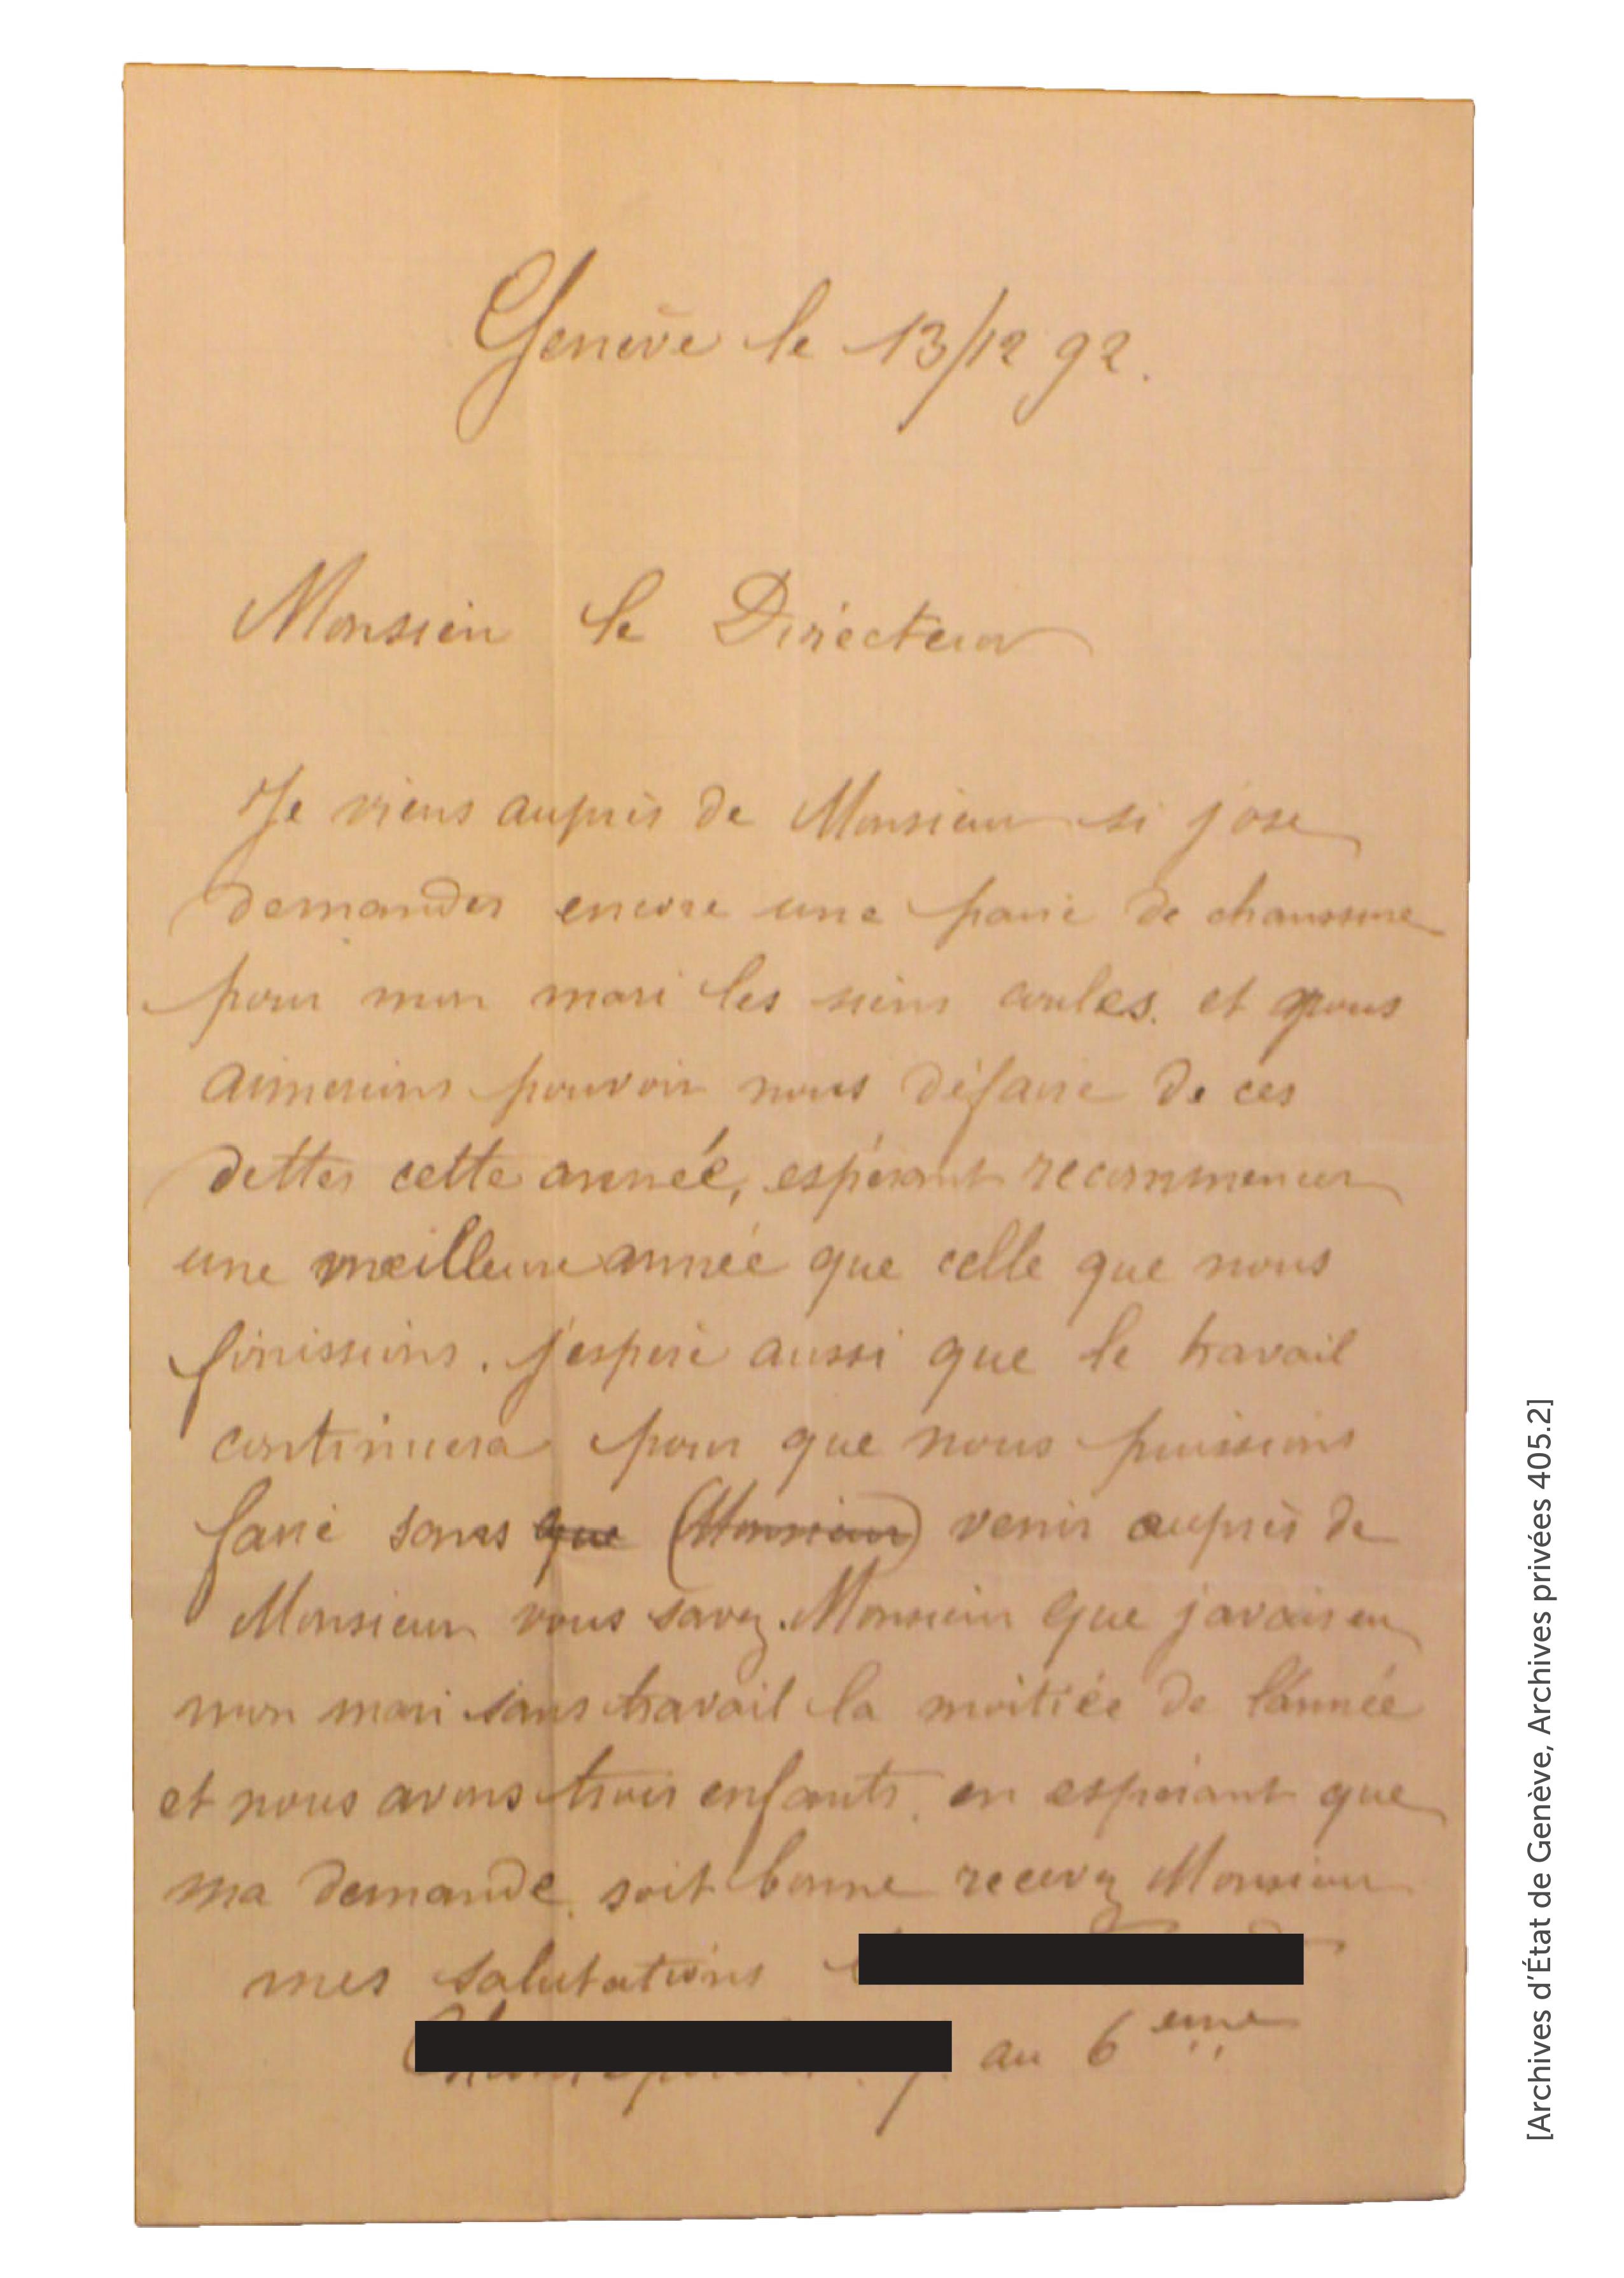 Genève le 13/12 92.
Monsieur le Directeur
Je viens auprès de Monsieur si j'ose
demander encore une paire de chaussure
pour mon mari les siens coules. et nous
aimerions pouvoir nous défaire de ces
dettes cette année, espérant recommencer
une meilleure année que celle que nous
finissions. j'espère aussi que le travail
continuera pour que nous puissions
faire sans que (Monsieur) venir auprès de
Monsieur vous savez. Monsieur que javais eu
mon mari sans travail la moitiée de l'année
et nous avons trois enfants. en espérant que
ma demande soit bonne recevez Monsieur
mes salutations
au 6 eme
[Archives d'État de Genève, Archives privées 405.2]